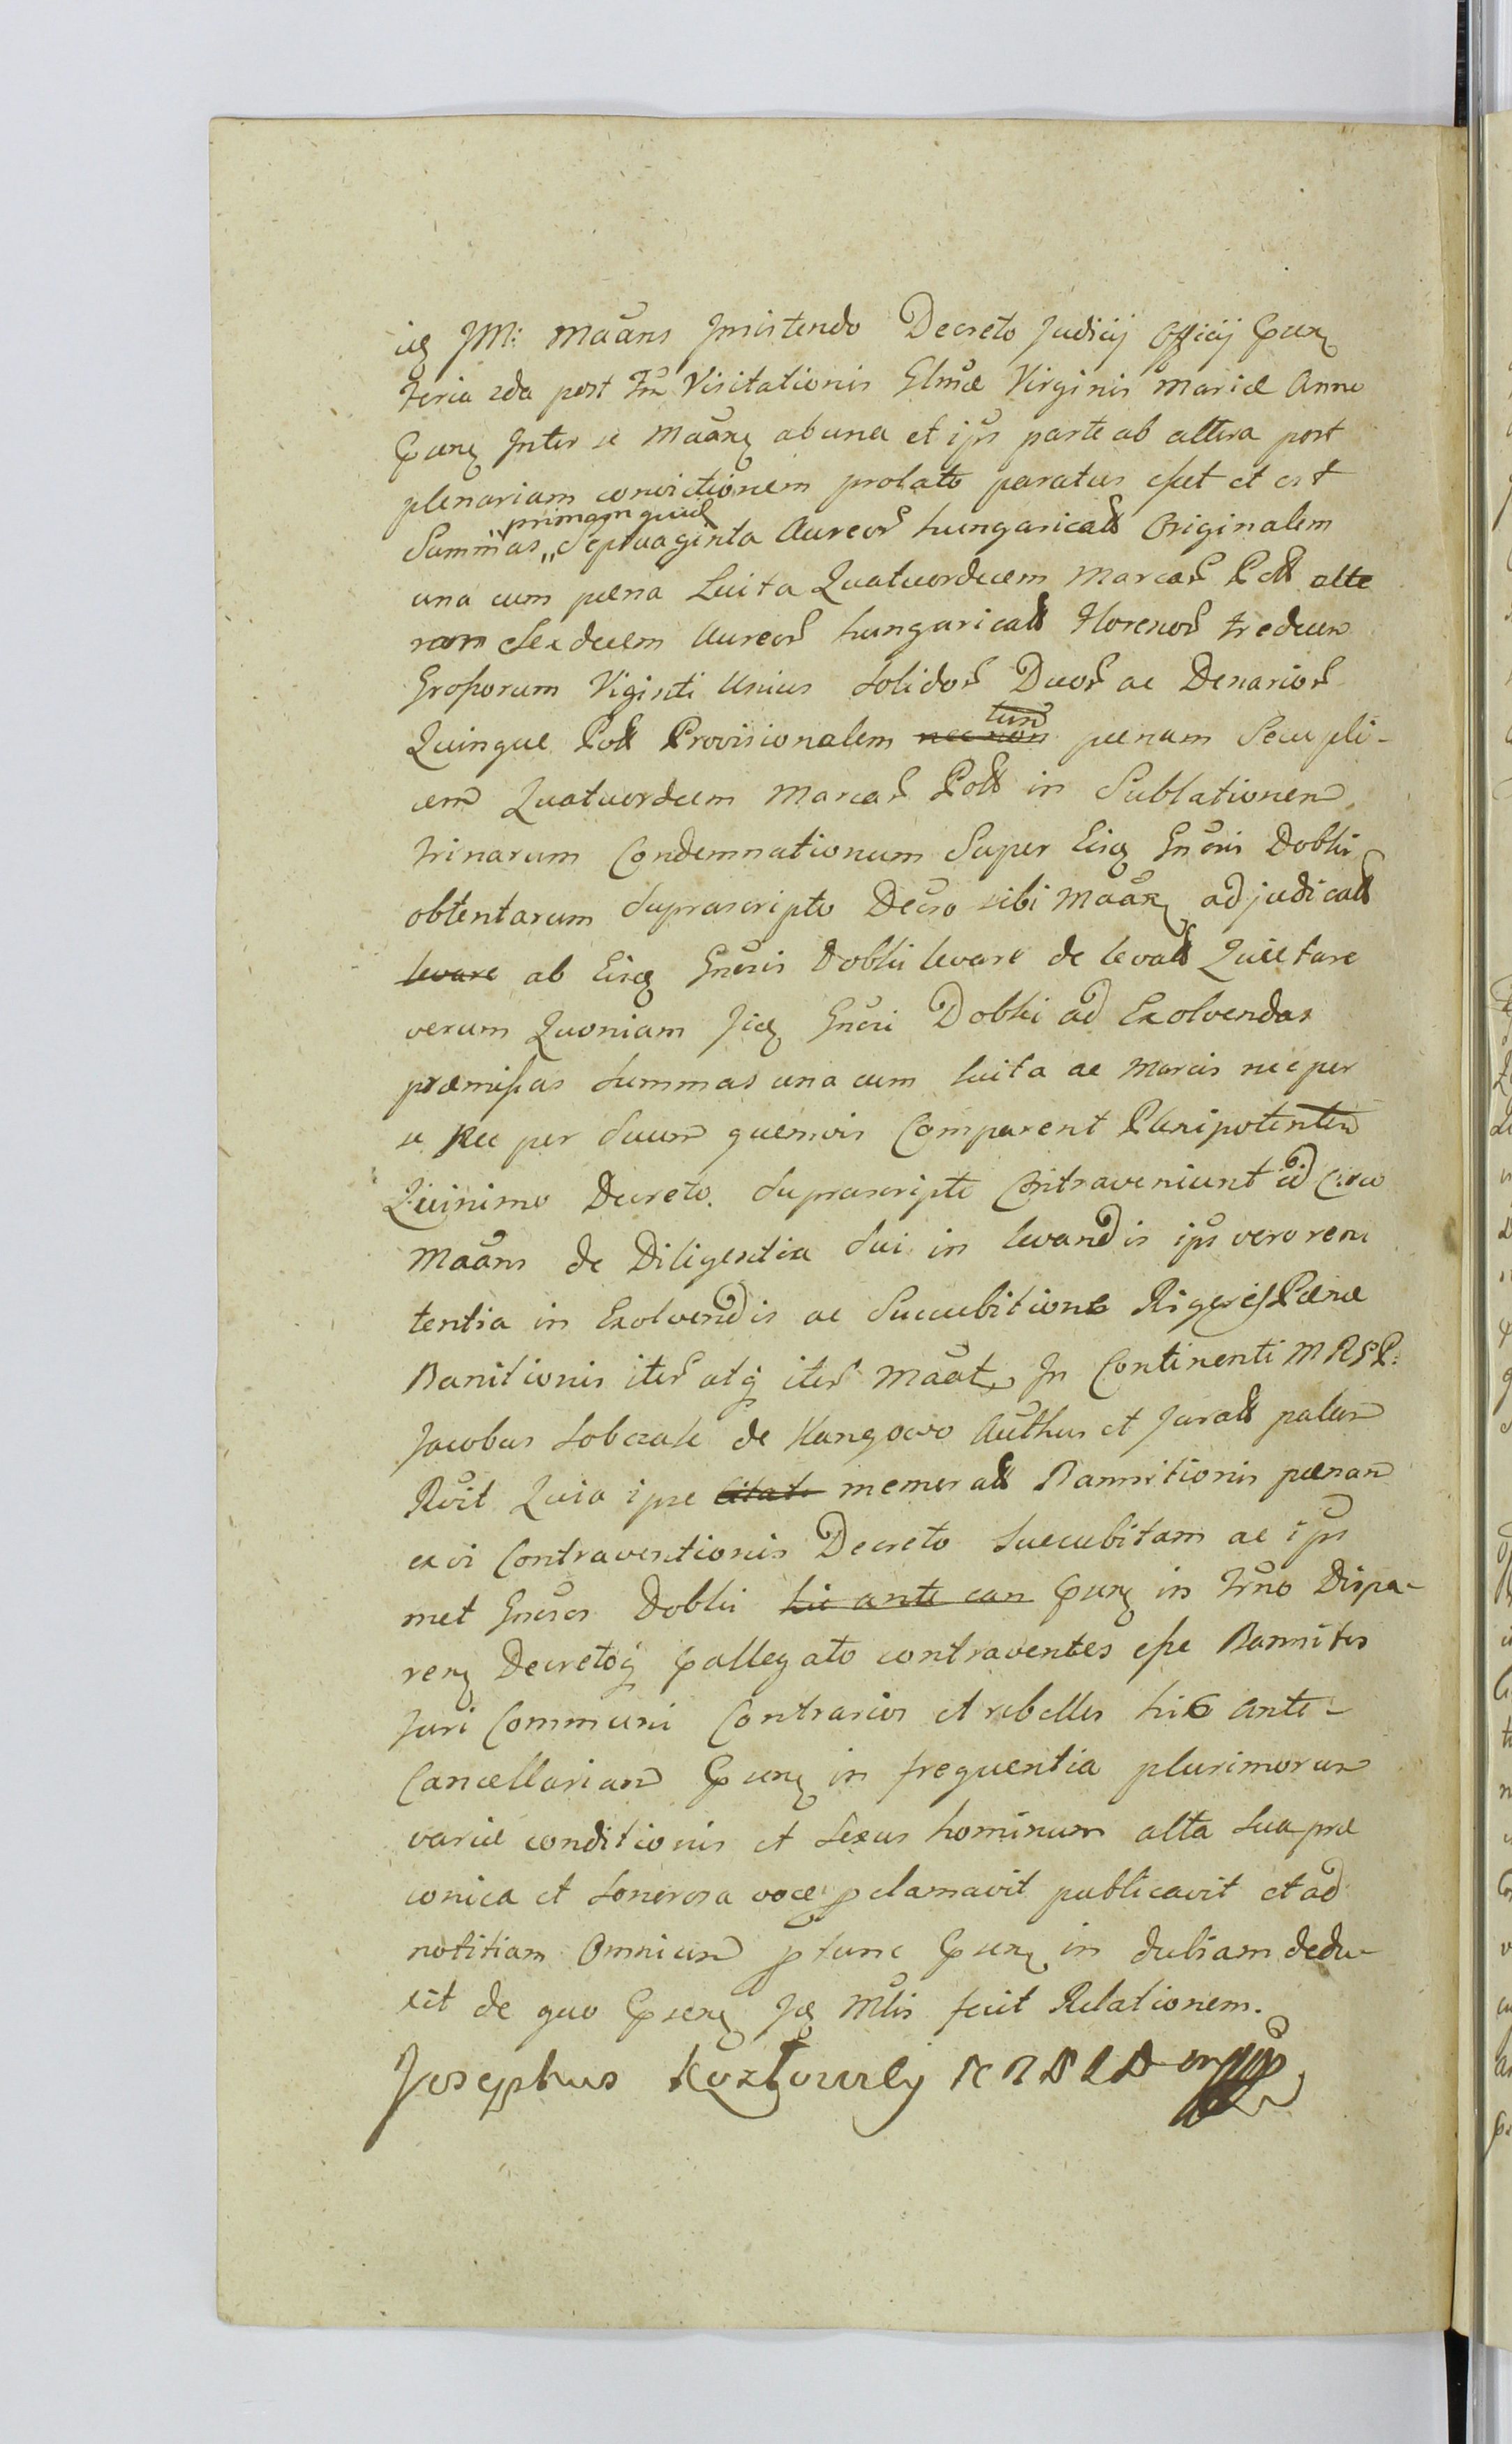 JM: Maãns Insistendo Decreto Judicij Officij
Feria 2da post Visitationis Virginis Mariæ Anno
Inter se ab una et parte ab altera post
plenariam convictionem prolato paratus esset et est
primam quid
Summas Septuaginta Aureos hungarical Originalem
una cum pæna Luita Quatuordecem Marcas Poll alte
ram Sexdecem Aureos hungarical Florenos tredecem
Grossorum Viginti Unius Solidos Duos ac Denarios
tum
Quingue Poll Provisionalem nec non pænam Secupli-
cem Quatuordecem Marcas Poll in Sublationem
trinarum Condemnationum Super Eisq Gnõris Dobki
obtentarum Suprascripto Decro sibi adjudicall
levare ab Eisq Gnõris Dobki levare de levall Quietare
verum Quoniam Gnõri Dobki ad Exolvendas
præmissas Summas una cum luita ac Marcis nec per
se nec per Suum quemvis Comparent Plenipotentem
Quinimo Decreto Suprascripto Contraveniunt
Maãns de Diligentia Sui in levandis vero reni
tentia in Exolvendis ac Succubitione Pænæ
Banitionis iter atq iter In Continenti M R S P:
Jacobus Sobczak de Kangowo et Jurall palam
Quia ipse memorall Bannitionis pænam
ex vi Contraventionis Decreto Succubitam ac ips
met Gnõsos Dobki hic ante can in Dispa-
Decretoq contraventes esse Bannitos
Juri Communi Contrarios et rebelles hic Ante-
Cancellariam in frequentia plurimorum
variæ conditionis et Sexus hominum alta Sua præ
conica et Sonorosa voce pclamavit publicavit et ad
notitiam Omnium ptunc in dubiam dedu-
xit de quo fecit Relationem.
Josephus